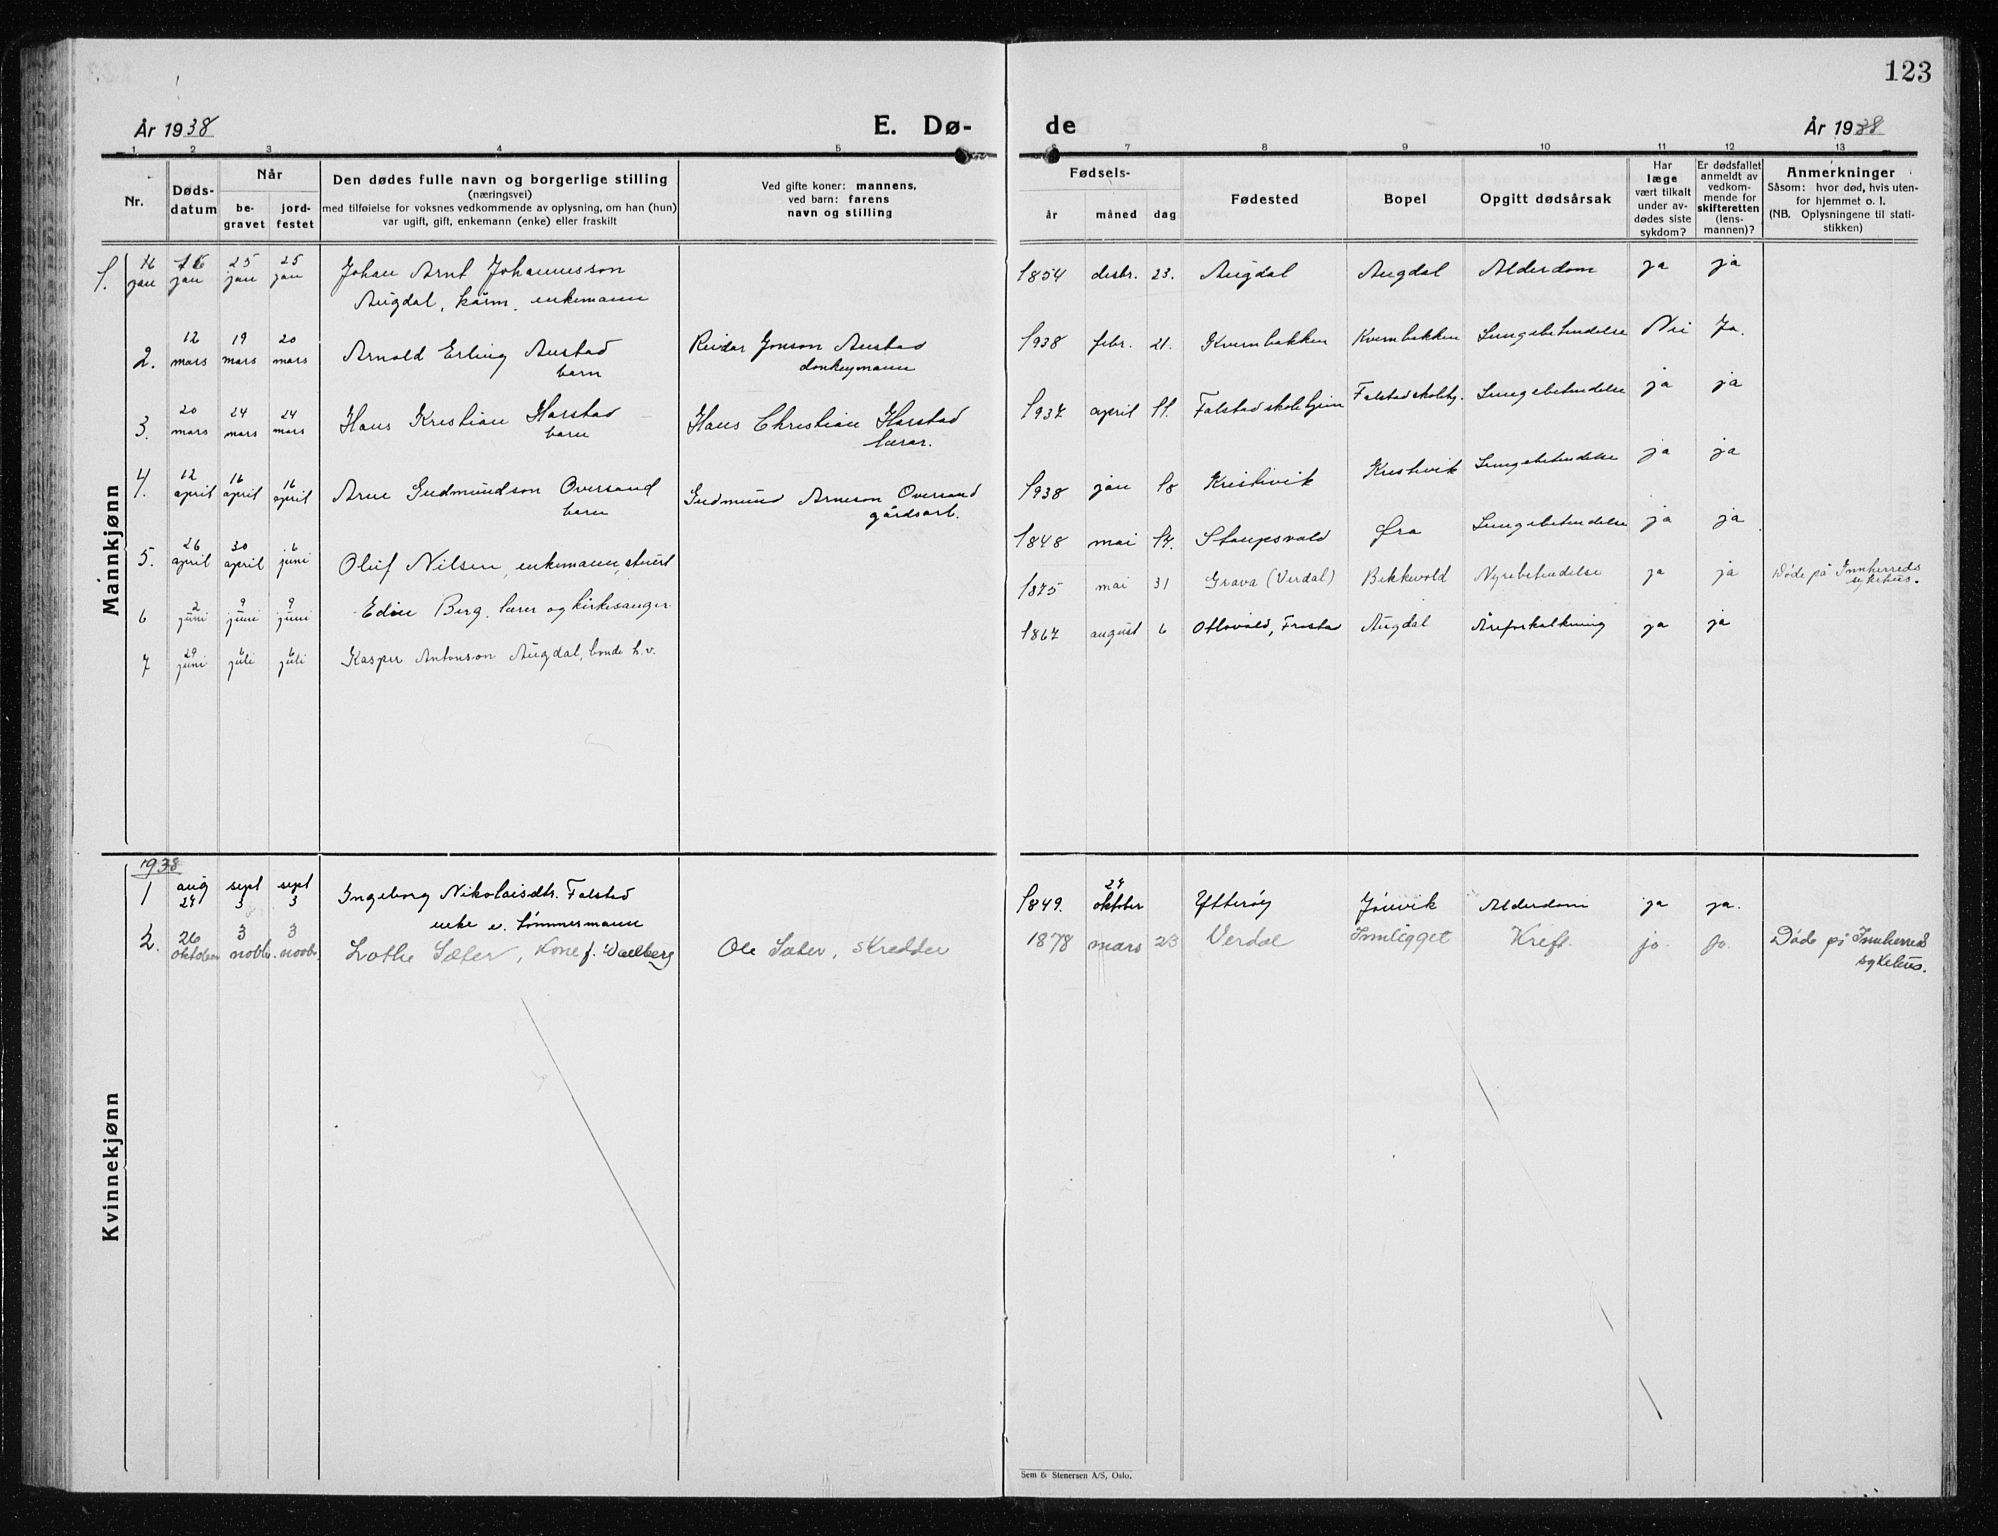 123
År 1938
E. Dø-
de
År 1938
1 2 3 4 5 6 7 8 9 10 11 12 13
Nr.
Døds-
datum
Når
be-
gravet
jord-
festet
Den dødes fulle navn og borgerlige stilling
(næringsvei)
med tilføielse for voksnes vedkommende av oplysning, om han (hun)
var ugift, gift, enkemann (enke) eller fraskilt
Ved gifte koner: mannens,
ved barn: farens
navn og stilling
Fødsels-
år måned dag
Fødested
Bopel
Opgitt dødsårsak
Har
læge
vært tilkalt
under av-
dødes siste
sykdom?
Er dødsfallet
anmeldt av
vedkom-
mende for
skifteretten
(lens-
mannen)?
Anmerkninger
Såsom: hvor død, hvis uten-
for hjemmet o. l.
(NB. Oplysningene til stati-
stikken)
Mannkjønn
1. 16 jan 16 jan 25 jan 25 jan Johan Arnt Johannesson 1854 desbr. 23. Augdal Augdal Alderdom ja ja
Augdal, kårm. enkemann
2. 12 mars 19 mars 20 mars Arnold Erling Austad Reidar Jonson Austad 1938 febr. 21. Kvernbakken Kvernbakken Lungebetendelse Nei Ja.
barn donkeymann
3. 20 mars 24 mars 24 mars Hans Kristian Harstad Hans Christian Harstad 1937 april 11. Falstad skolehjem Falstad skolehj. Lungebetendelse ja ja
barn lærar.
4. 12 april 16 april 16 april Arne Gudmundson Oversand Gudmund Arneson Oversand 1938 jan 18 Kristivik Kristivik Lungebetendelse ja ja
barn gårdsarb.
5. 26 april 30 april 6 juni Oluf Nilsen, enkemann, stuert 1848 mai 17. Staupsvald Øra Lungebetendelse ja ja
6 2 juni 9 juni 9 juni Edin Berg, lærer og kirkesanger 1875 mai 31 Grava (Verdal) Bekkevold Nyrebetendelse ja ja Døde på Innherreds
sykehus.
7 29 juni 6 juli 6 juli Kasper Antonson Augdal, bonde h.v. 1867 august 6 Frosta Augdal Åreforkalkning ja ja
Kvinnekjønn
1938
1 aug 24 sept 3 sept 3 Ingeborg Nikolaisdtr. Falstad 1849. 24 oktober Ytterøy Jørvik Alderdom ja ja.
enke e. tømmermann
2. 26 oktober 3 novbr. 3 novbr. Lothe Sæter, Kone f. Valberg Ole Sæter, skredder 1878 mars 23 Verdal Innlegget Kreft. ja. ja. Døde på Innherred
sykehus.
Sem & Stenersen A/S, Oslo.